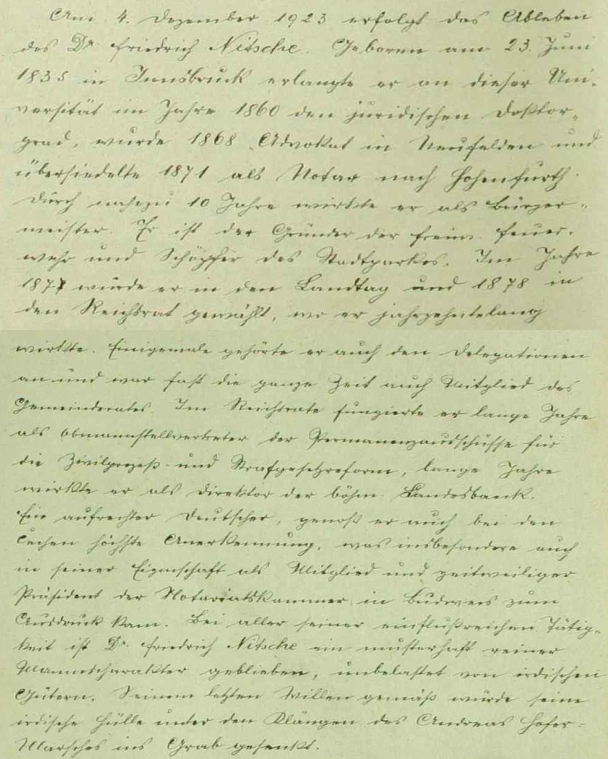 Am 4. Dezember 1923 erfolgt das Ableben
des Dr. Friedrich Nitsche. Geboren am 23. Juni
1835 in Innsbruck erlangte er an dieser Uni-
versität im Jahre 1860 den juridischen Doktor-
grad, wurde 1868 Advokat in Neufelden und
übersiedelte 1871 als Notar nach Hohenfurth.
Durch nahezu 10 Jahre wirkte er als Bürger-
meister. Er ist der Gründer der freiw. Feuer-
wehr und Schöpfer des Stadtparkes. Im Jahre
1877 wurde er in den Landtag und 1878 in
den Reichsrat gewählt, wo er jahrzehntelang
wirkte. Einigemale gehörte er auch den Delegationen
an und war fast die ganze Zeit auch Mitglied des
Gemeinderates. Im Reichsrate fungierte er lange Jahre
als Obmannstellvertreter der Permanenzausschüsse für
die Zivilprozeß- und Strafgesetzreform, lange Jahre
wirkte er als Direktor der böhm. Landesbank.
Ein aufrechter Deutscher, genoß er auch bei den
Cechen höchste Anerkennung, was insbesondere auch
in seiner Eigenschaft als Mitglied und zeitweiliger
Präsident der Notariatskammer in Budweis zum
Ausdruck kam. Bei aller seiner einflußreichen Tätig-
keit ist Dr. Friedrich Nitsche ein musterhaft reiner
Mannescharakter geblieben, unbelastet von irdischen
Gütern. Seinem letzten Willen gemäß wurde seine
irdische Hülle unter den Klängen des Andreas Hofer-
Marsches ins Grab gesenkt.